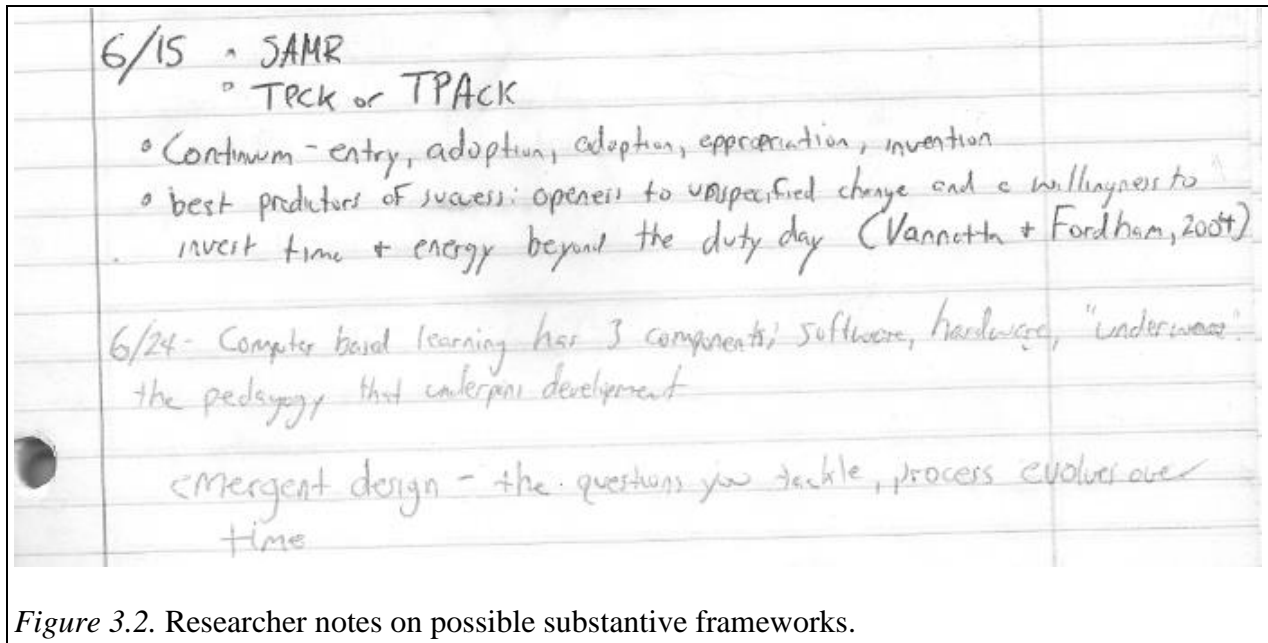 6/15 ◦ SAMR
◦ TPCK or TPACK
◦ Continuum - entry, adoption, adaption, appropriation, invention
◦ best predictors of success: openess to unspecified change and a willingness to
invest time + energy beyond the duty day (Vannatta + Fordham, 2004)
6/24 - Computer based learning has 3 components; software, hardware, "underware"
the pedagogy that underpins development
emergent design - the questions you tackle, process evolves over
time
Figure 3.2. Researcher notes on possible substantive frameworks.